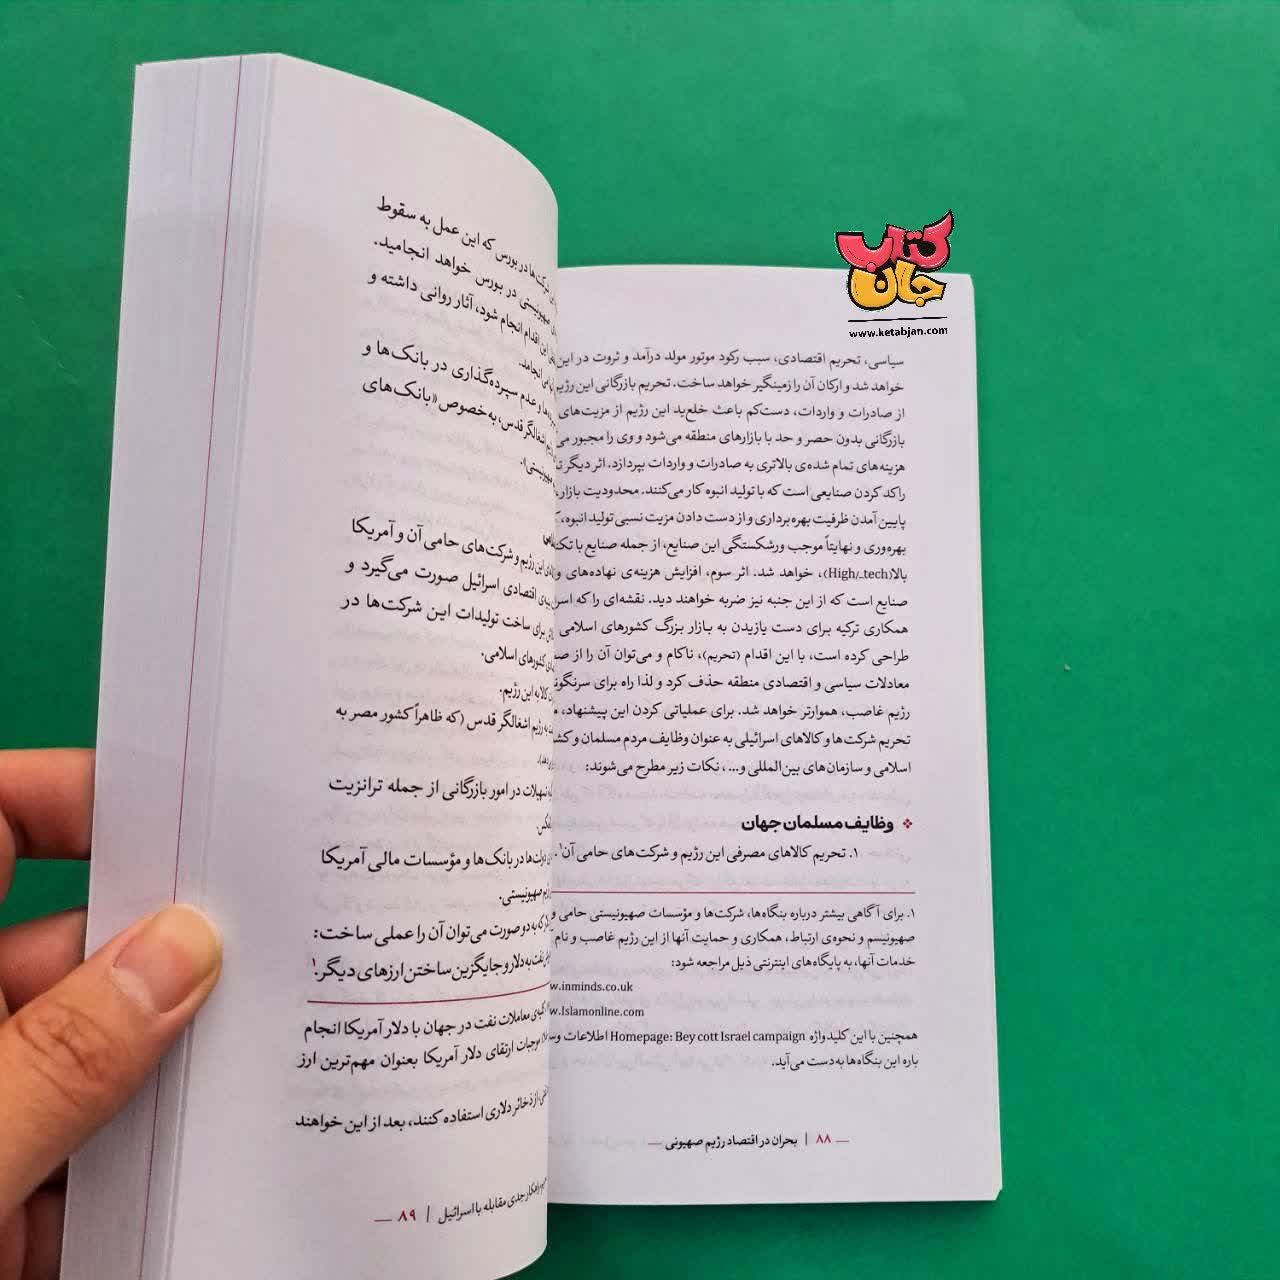 کتاب جان
www.ketabjan.com
سیاسی، تحریم اقتصادی، سبب رکود موتور مولد درآمد و ثروت در این
خواهد شد و ارکان آن را زمینگیر خواهد ساخت. تحریم بازرگانی این رژیم
از صادرات و واردات، دست‌کم باعث خلع‌ید این رژیم از مزیت‌های
بازرگانی بدون حصر و حد با بازارهای منطقه می‌شود و وی را مجبور
هزینه‌های تمام شده‌ی بالاتری به صادرات و واردات بپردازد. اثر دیگر
راکد کردن صنایعی است که با تولید انبوه کار می‌کنند. محدودیت بازار،
پایین آمدن ظرفیت بهره‌برداری و از دست دادن مزیت نسبی تولید انبوه،
بهره‌وری و نهایتاً موجب ورشکستگی این صنایع، از جمله صنایع با
بالا(High/_tech)، خواهد شد. اثر سوم، افزایش هزینه‌ی نهاده‌های
صنایع است که از این جنبه نیز ضربه خواهند دید. نقشه‌ای را که
همکاری ترکیه برای دست یازیدن به بازار بزرگ کشورهای اسلامی
طراحی کرده است، با این اقدام (تحریم)، ناکام و می‌توان آن را از
معادلات سیاسی و اقتصادی منطقه حذف کرد و لذا راه برای
رژیم غاصب، هموارتر خواهد شد. برای عملیاتی کردن این پیشنهاد،
تحریم شرکت‌ها و کالاهای اسرائیلی به عنوان وظایف مردم مسلمان و
اسلامی و سازمان‌های بین‌المللی و...، نکات زیر مطرح می‌شوند:
❖ وظایف مسلمان جهان
۱. تحریم کالاهای مصرفی این رژیم و شرکت‌های حامی آن۱.
۱. برای آگاهی بیشتر درباره بنگاه‌ها، شرکت‌ها و مؤسسات صهیونیستی حامی و
صهیونیسم و نحوه‌ی ارتباط، همکاری و حمایت آنها از این رژیم غاصب و نام
خدمات آنها، به پایگاه‌های اینترنتی ذیل مراجعه شود:
w.inminds.co.uk
w.Islamonline.com
همچنین با این کلیدواژه Homepage: Bey cott Israel campaign اطلاعات
باره این بنگاه‌ها به‌دست می‌آید.
— ۸۸ | بحران در اقتصاد رژیم صهیونی —
شرکت‌ها در بورس که این عمل به سقوط
صهیونیستی در بورس خواهد انجامید.
این اقدام انجام شود، آثار روانی داشته و
انجامد.
و عدم سپرده‌گذاری در بانک‌ها و
اشغالگر قدس، به‌خصوص «بانک‌های
صهیونیستی».
این رژیم و شرکت‌های حامی آن و آمریکا
اقتصادی اسرائیل صورت می‌گیرد و
برای ساخت تولیدات این شرکت‌ها در
کشورهای اسلامی.
کالا به این رژیم.
به رژیم اشغالگر قدس (که ظاهراً کشور مصر به
تسهیلات در امور بازرگانی از جمله ترانزیت
دولت‌ها در بانک‌ها و مؤسسات مالی آمریکا
صهیونیستی.
که به دو صورت می‌توان آن را عملی ساخت:
نفت به دلار و جایگزین ساختن ارزهای دیگر.۱
معاملات نفت در جهان با دلار آمریکا انجام
موجبات ارتقای دلار آمریکا بعنوان مهم‌ترین ارز
از ذخائر دلاری استفاده کنند، بعد از این خواهند
راهکار جدی مقابله با اسرائیل | ۸۹ —